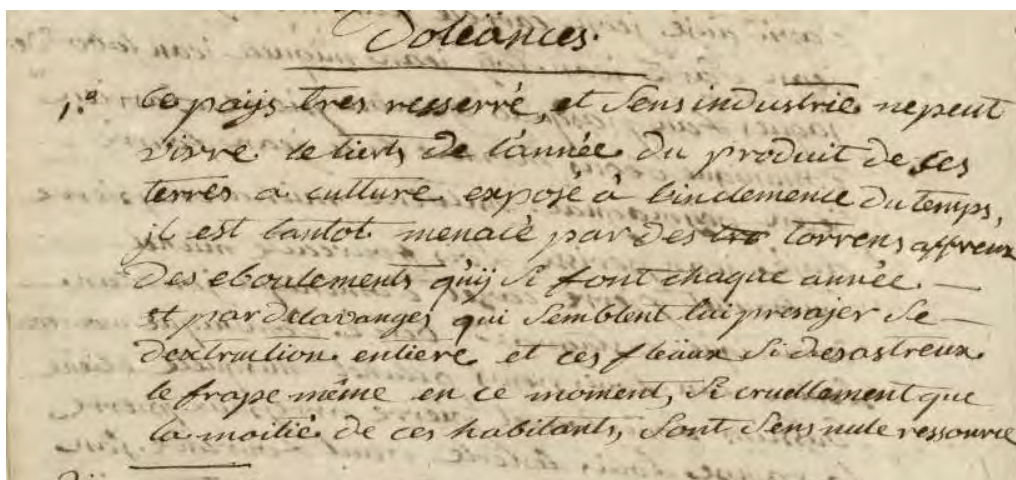 Doléances.
1.° Ce païs tres resserré, et Sens industrie ne peut
vivre le tiers de l'année du produit de ses
terres a culture exposé à lindemence du temps,
il est tantot menacé par des torrens affreux
des eboulements qu'ij si font chaque année —
et par delavanges qui semblent lui presajer se —
dextruction entiere et ces fleäux si desastreux
le frape même en ce moment, si cruellement que
la moitié de ces habitants, sont sens nule ressource